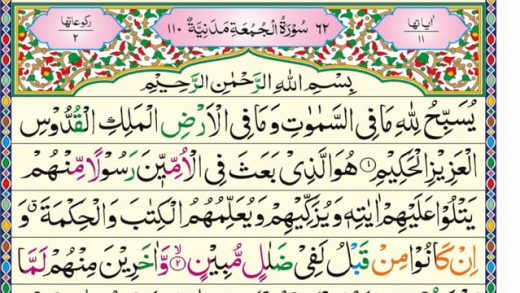 اٰیاتها ١١
٦٢ سُوْرَةُ الْجُمُعَةِ مَدَنِيَّةٌ ١١٠
رکوعاتها ٢
بِسْمِ اللّٰهِ الرَّحْمٰنِ الرَّحِيْمِ
يُسَبِّحُ لِلّٰهِ مَا فِى السَّمٰوٰتِ وَمَا فِى الْاَرْضِ الْمَلِكِ الْقُدُّوْسِ
الْعَزِيْزِ الْحَكِيْمِ ۝١ هُوَ الَّذِىْ بَعَثَ فِى الْاُمِّيّٖنَ رَسُوْلًا مِّنْهُمْ
يَتْلُوْا عَلَيْهِمْ اٰيٰتِهٖ وَيُزَكِّيْهِمْ وَيُعَلِّمُهُمُ الْكِتٰبَ وَالْحِكْمَةَ ۗ وَ
اِنْ كَانُوْا مِنْ قَبْلُ لَفِىْ ضَلٰلٍ مُّبِيْنٍ ۝٢ۙ وَّاٰخَرِيْنَ مِنْهُمْ لَمَّا